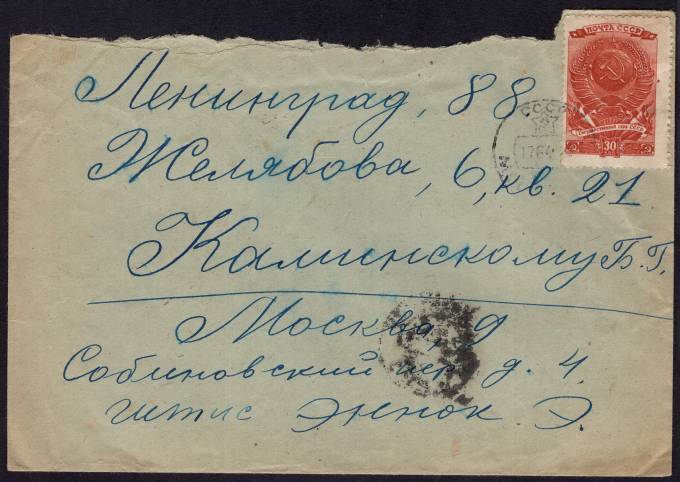 ПОЧТА СССР
30
СССР
Ленинград, 88
Желябова, 6, кв. 21
Каминскому Б. Г.
Москва, 9
Собиновский пер. д. 4.
гитис Эннок. Э.